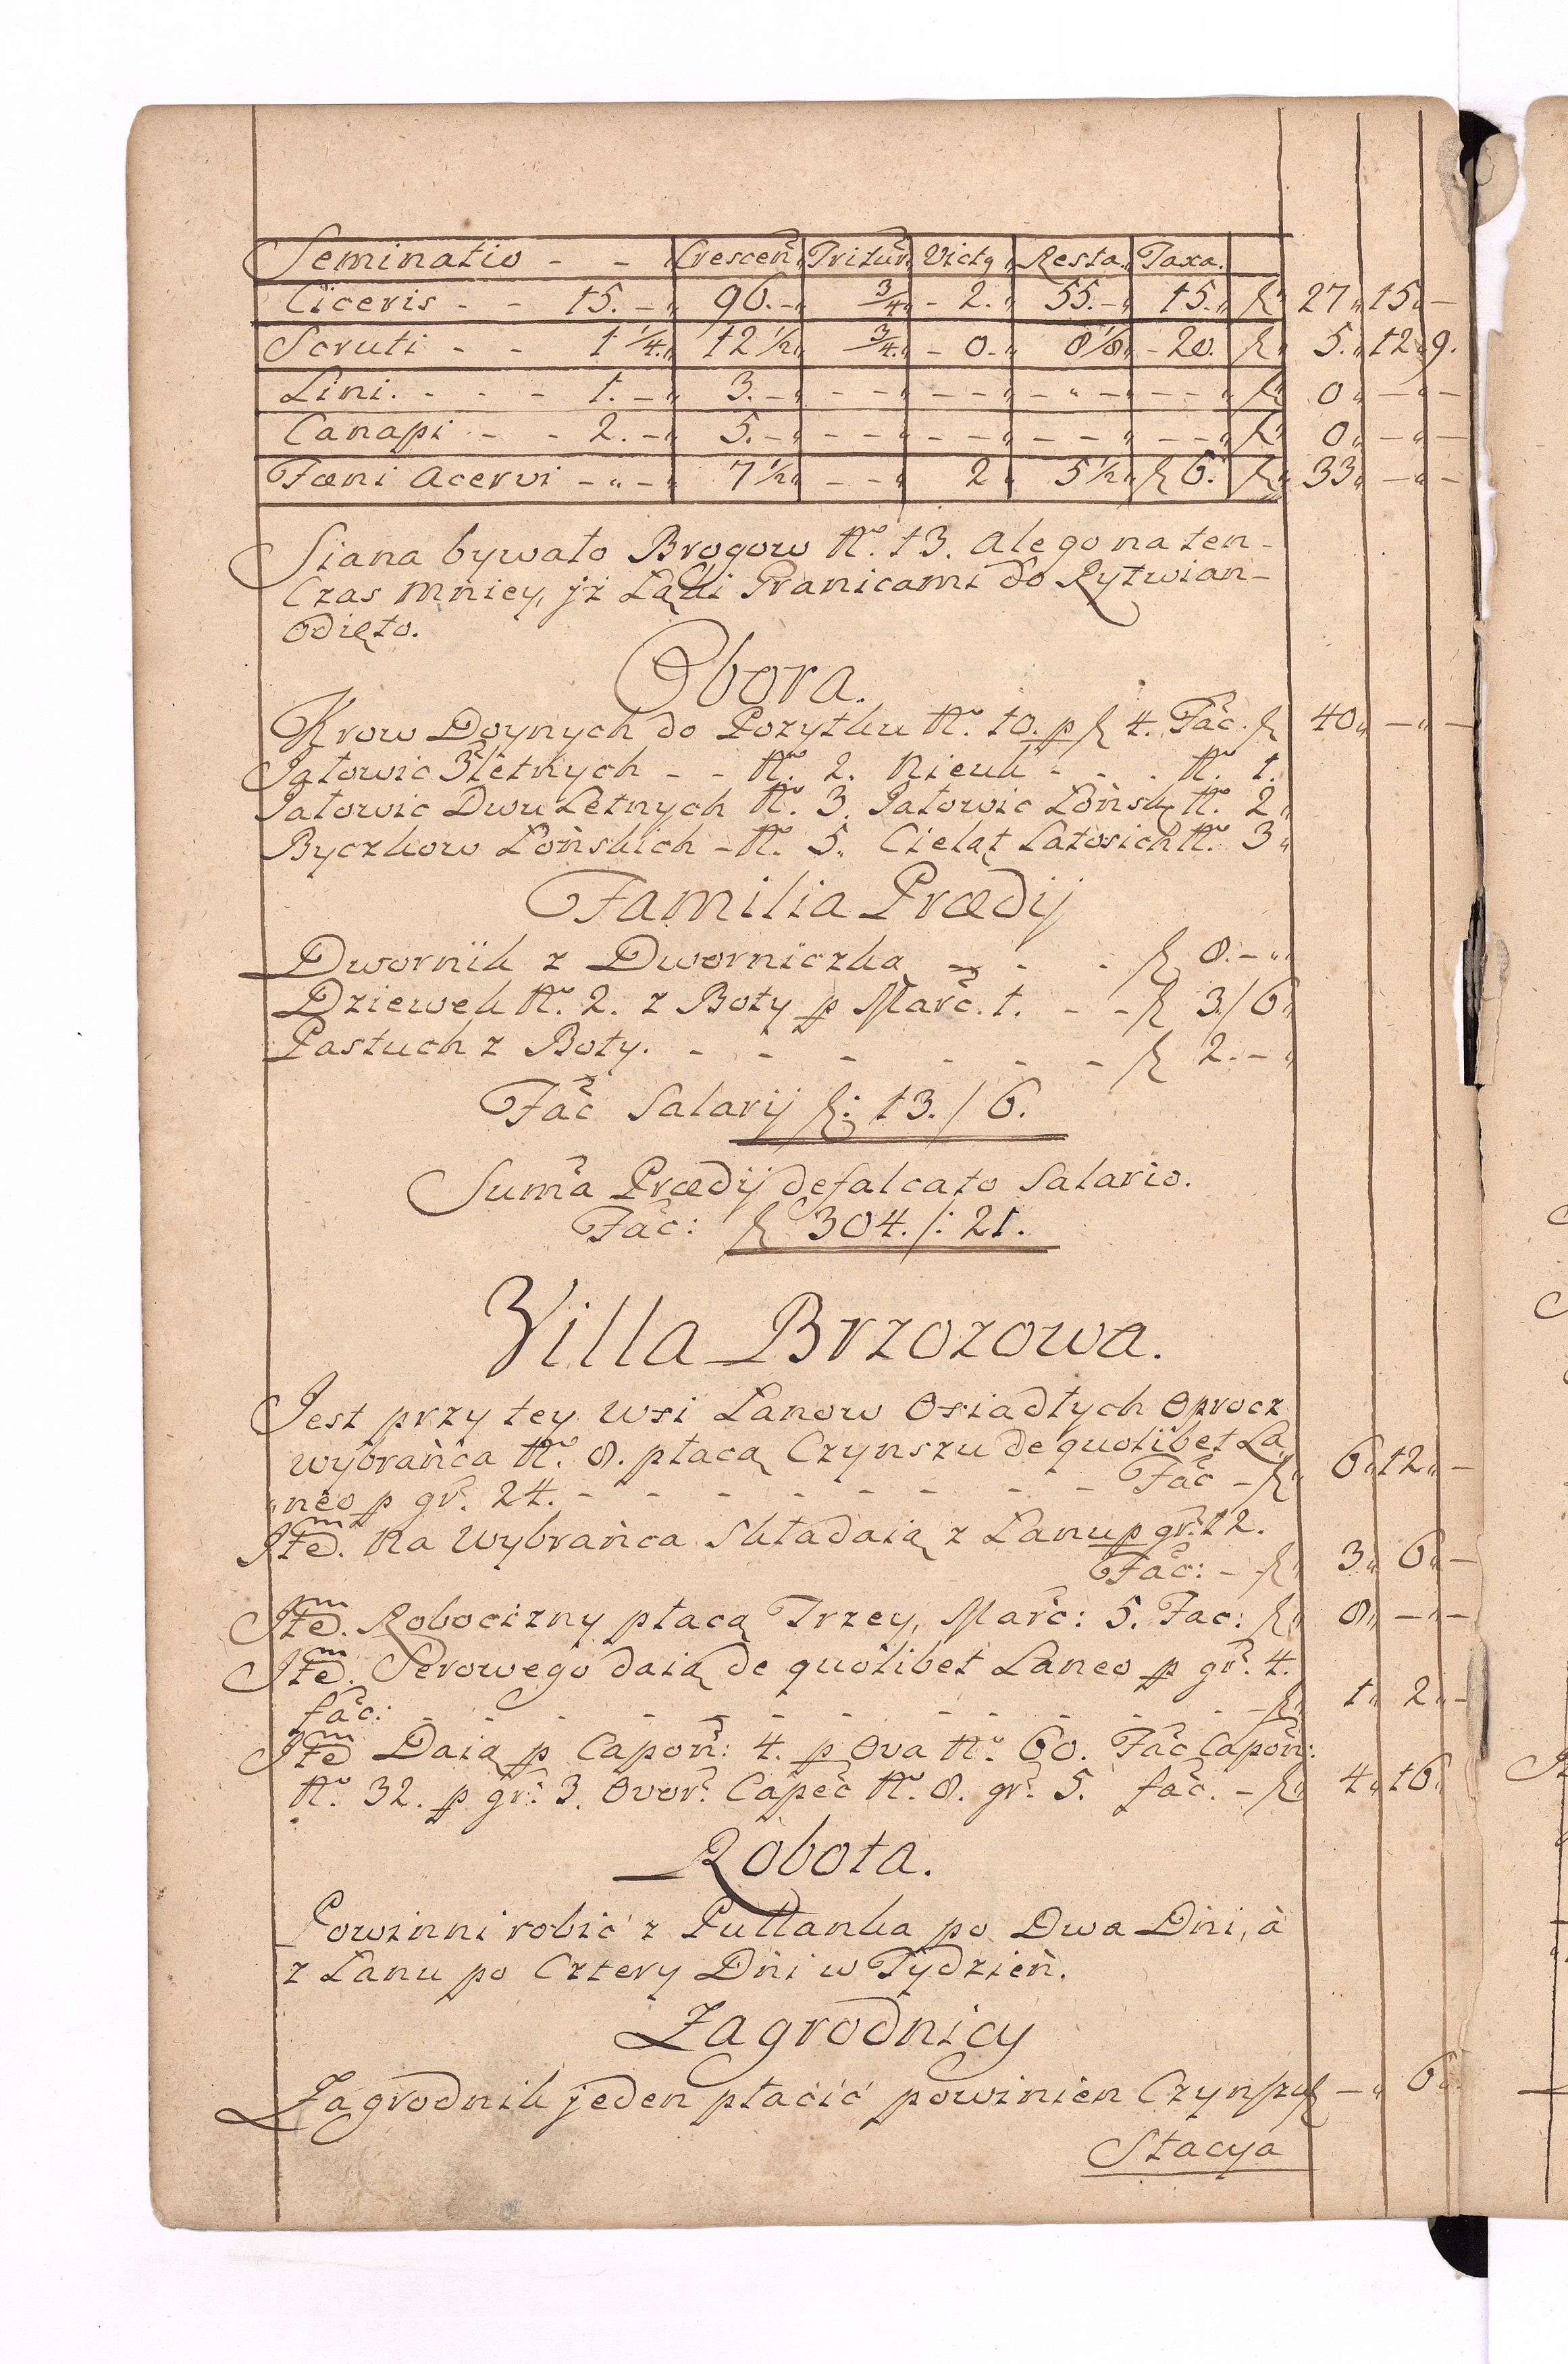 Seminatio - - Crescen. Tritur. Victq Resta. Taxa.
Ciceris - - 15. - 96. - 3/4 - 2. 55. - 15. fl 27 15 -
Scruti - - 1 1/4. 12 1/2 3/4. - 0. 8 1/8 - 20. fl 5. 12 9.
Lini. - - - 1. - 3. - - - - - - - - - fl 0 - -
Canapi - - 2. - 5. - - - - - - - - - fl 0 - -
Fæni Acervi - - 7 1/2 - - 2 5 1/2 fl 6. fl 33 - -
Siana bywało Brogow No. 13. Ale go na ten-
Czas mniey, jż Łąki Granicami do Rytwian-
Odięto.
Obora.
Krow Doynych do Pozytku No. 10. p fl 4. Fac. fl 40 - -
Jałowic 3letnych - - No. 2. Nieuk - - - No. 1.
Jałowic Dwu Letnych No. 3. Jałowic Łońsk No. 2
Byczkow Łońskich - No. 5. Cieląt Latosich No. 3
Familia Prædij
Dwornik z Dworniczką - - - fl 8. -
Dziewek No. 2. z Boty p Marc. 1. - - fl 3/6
Pastuch z Boty. - - - - - - fl 2. -
Fac Salarij fl: 13./6.
Suma Prædij defalcato Salario.
Fac: fl 304./: 21.
Villa Brzozowa.
Jest przy tey wsi Łanow Osiadłych Oprocz
wybrańca No. 8. płacą Czynszu de quolibet La
neo p gr. 24. - - - - - - - - Fac - fl 6 12 -
Item. Na Wybrańca Składaią z Łanu p gr. 12.
Fac: - fl 3 6 -
Item. Robocizny płacą Trzey, Marc: 5. Fac: fl 8 - -
Item. Serowego daią de quolibet Laneo p gr. 4.
fac: - - - - - - - - - - fl 1 2 -
Item Daią p Capon: 4. p Ova No. 60. Fac Capon:
No. 32. p gr: 3. Ovor. Capec No. 8. gr. 5. fac. - fl 4 16
Robota.
Powinni robić z Pułłanka po Dwa Dni, à
z Łanu po Cztery Dni w Tydzień.
Zagrodnicy
Zagrodnik jeden płacić powinien Czynszu fl - 6
Stacya